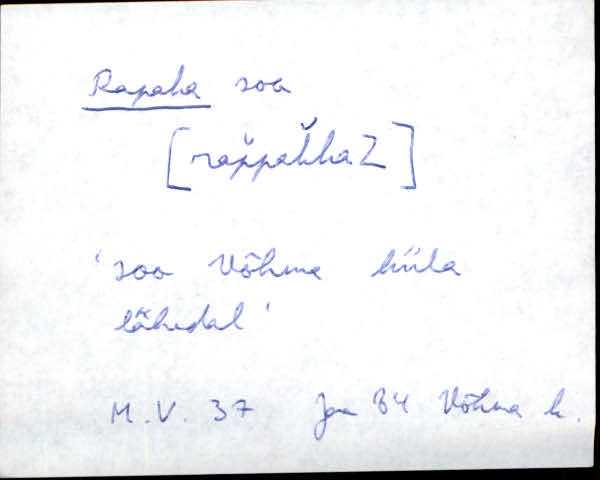 Rapaka soo
[rap̆pak̆kaZ]
'soo Võhma küla
lähedal'
M. V. 37 Jõe 84 Võhma k.